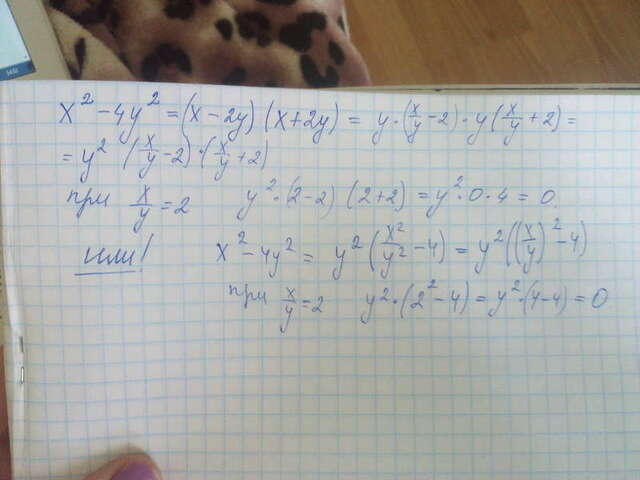 x² - 4y² = (x - 2y) (x + 2y) = y · (x/y - 2) · y (x/y + 2) =
= y² (x/y - 2) · (x/y + 2)
при x/y = 2 y² · (2 - 2) (2 + 2) = y² · 0 · 4 = 0.
или! x² - 4y² = y² (x²/y² - 4) = y² ((x/y)² - 4)
при x/y = 2 y² · (2² - 4) = y² · (4 - 4) = 0